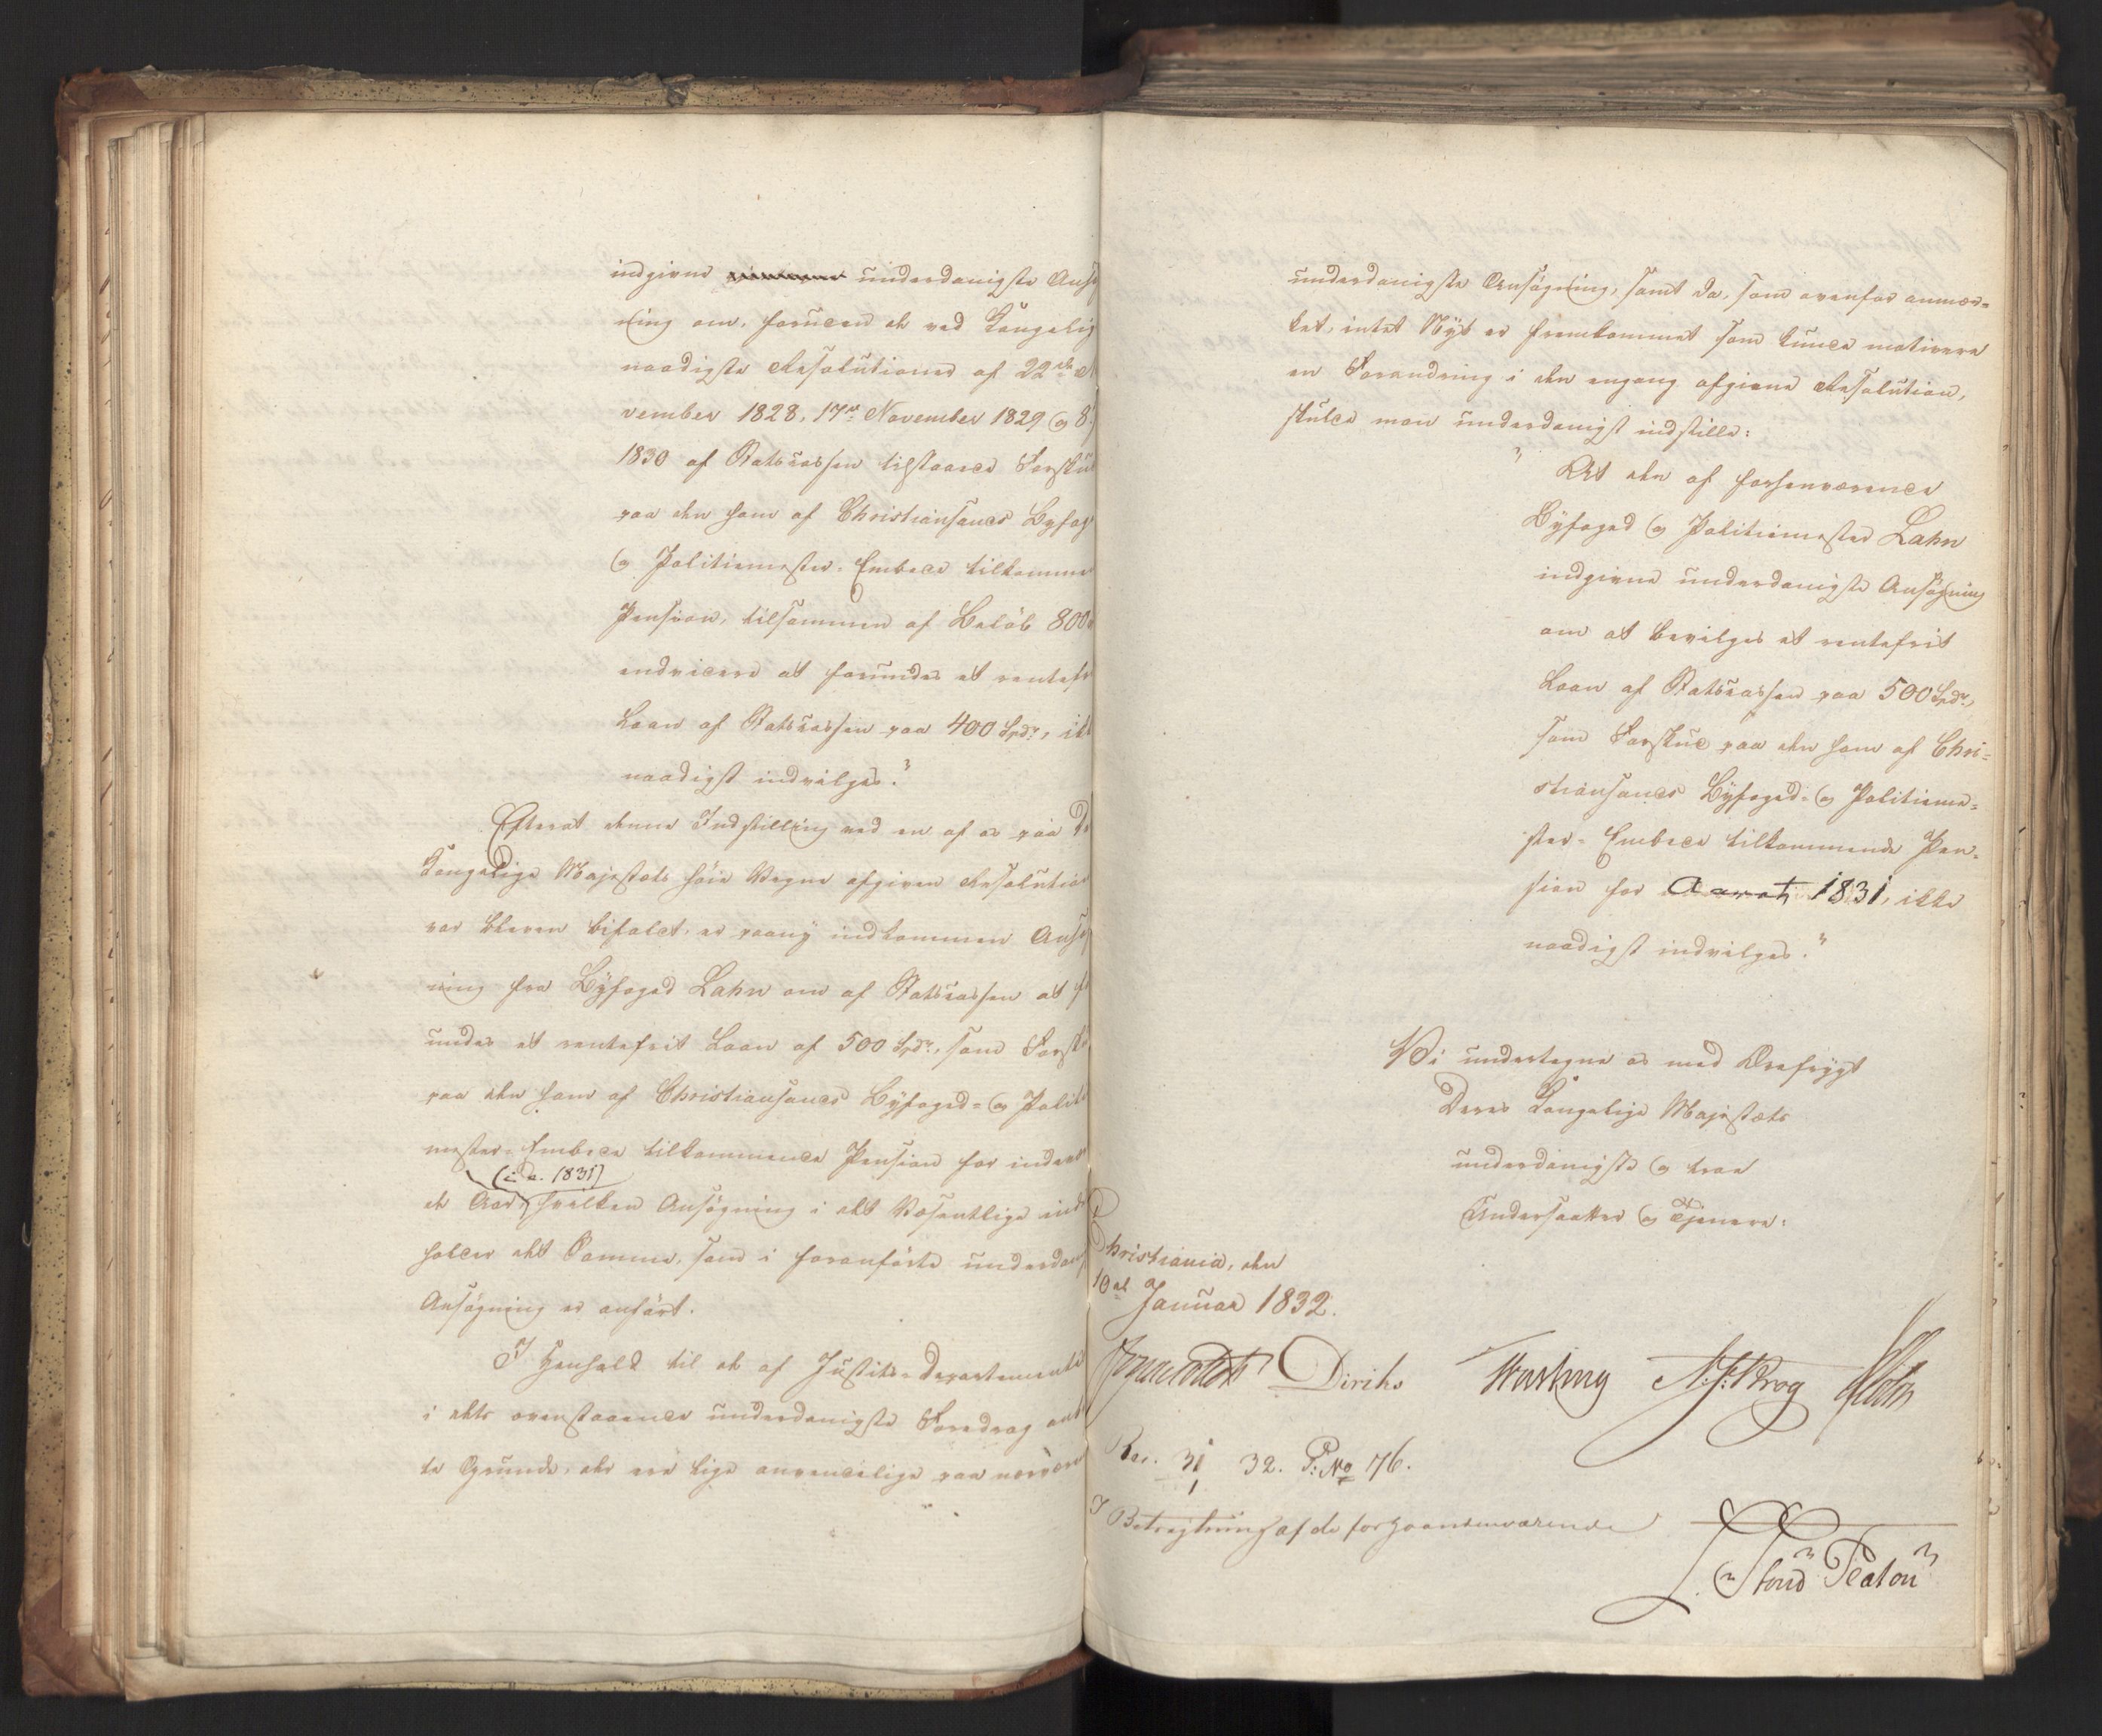 indgivne underdanigste Ansø
ning om, foruden de ved Kongelig
naadigste Resolutioner af 22de
vember 1828, 17de November 1829 og 8
1830 af Statscassen tilstaaede Forskud
paa den ham af Christiansands Byfog
og Politiemester-Embede tilkommen
Pension, tilsammen af Beløb 800
endvidere at forundes et rentefr
Laan af Statscassen paa 400 Spdr, ik
naadigst indvilges."
Efterat denne Indstilling ved en af os paa De
Kongelige Majestæts høie Vegne afgiven Resolution
var bleven bifaldt, er paany indkommen Ansø
ning fra Byfoged Lahn om af Statscassen at f
undes et rentefrit Laan af 500 Spdr, som Forsk
paa den ham af Christiansands Byfoged- og Politi
mester-Embede tilkommende Pension for indev
(i. e. 1831)
de Aar, hvilken Ansøgning i det Væsentlige inde
holder det Samme, som i foranførte underdan
Ansøgning er anført.
I Henhold til de af Justits-Departementet
i dets ovenstaaende underdanigste Foredrag anf
te Grunde, der ere lige anvendelige paa nærvære
underdanigste Ansøgning, samt da, som ovenfor anmær-
ket, intet Nyt er fremkommet som kunde motivere
en Forandring i den engang afgivne Resolution,
skulde man underdanigst indstille:
" At den af forhenværende
Byfoged og Politiemester Lahn
indgivne underdanigste Ansøgning
om at bevilges et rentefrit
Laan af Statscassen paa 500 Spdr,
som Forskud paa den ham af Chri-
stiansands Byfoged- og Politieme-
ster-Embede tilkommende Pen-
sion for Aaret 1831, ikke
naadigst indvilges."
Vi undertegne os med Ærefrygt
Deres Kongelige Majestæts
underdanigste og troe
Undersaatter og Tjenere:
Christiania, den
10de Januar 1832.
Diriks N. J. Krog
Res. 31/1 32. P: No 76.
I Betragtning af de forhaandenværende